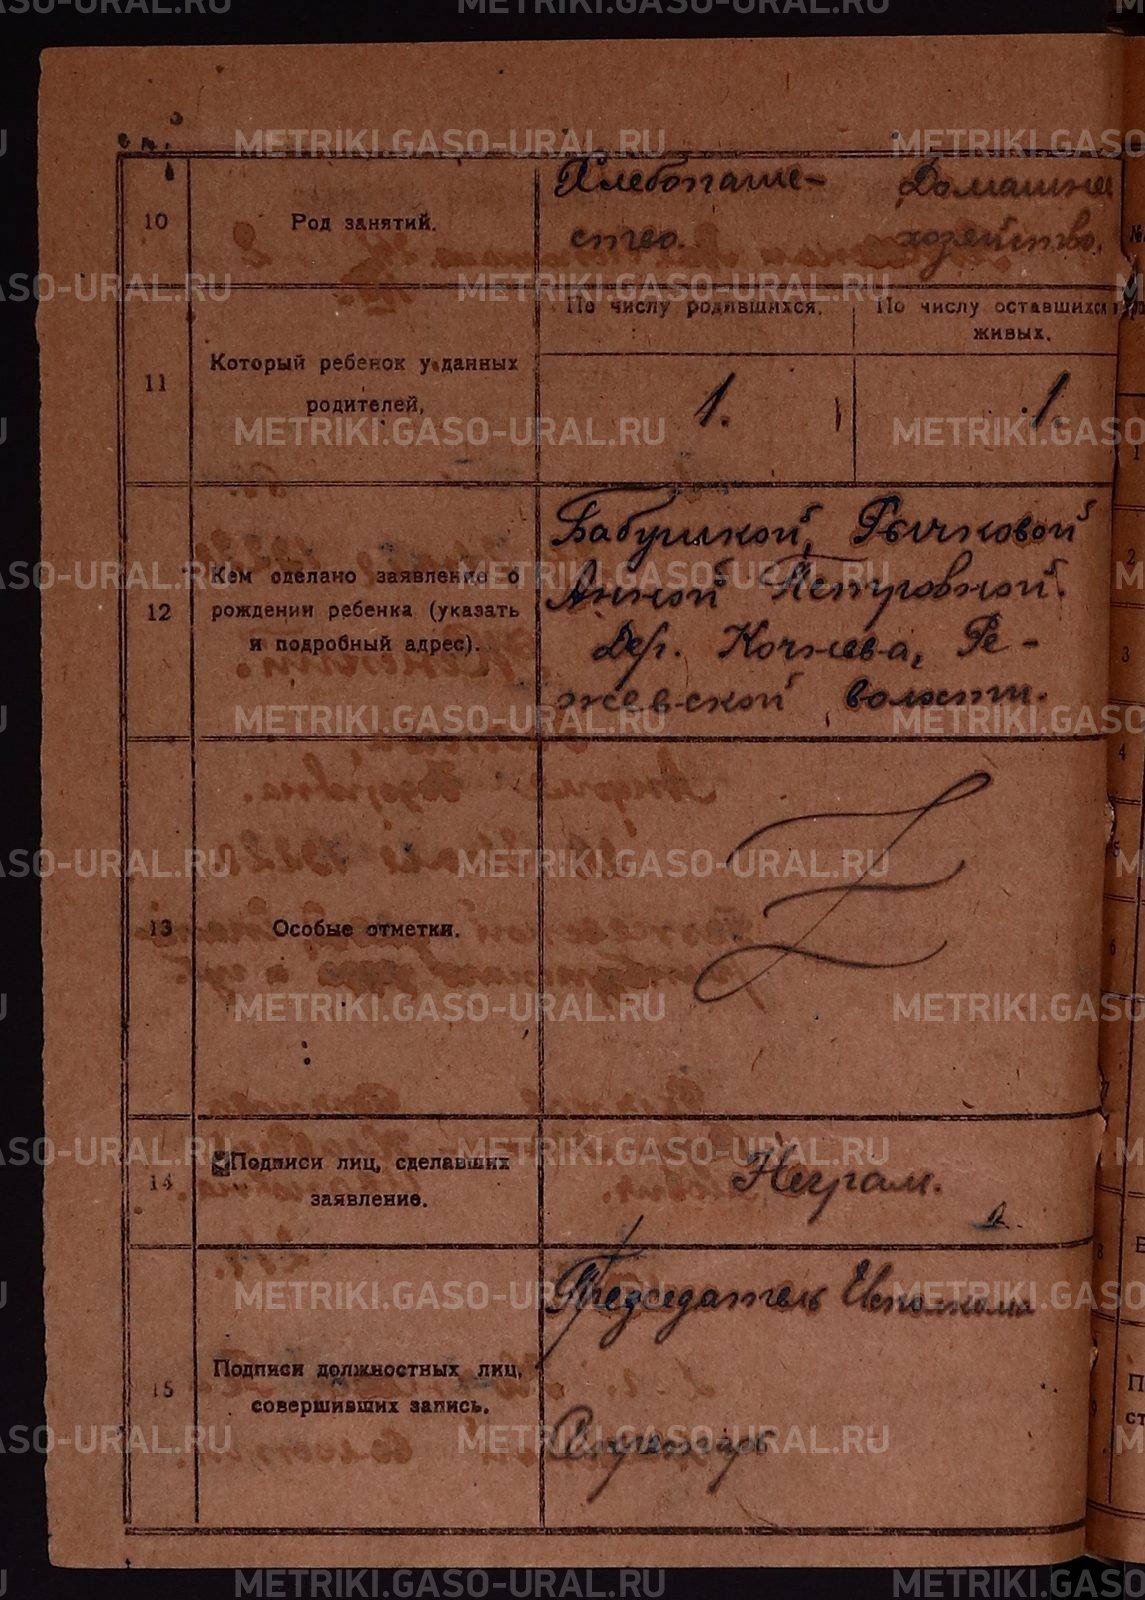 METRIKI.GASO-URAL.RU
10
Род занятий.
Хлебопаше-
ство.
Домашнее
хозяйство.
11
Который ребенок у данных
родителей,
По числу родившихся.
1.
По числу оставшихся
живых.
1.
12
Кем сделано заявление о
рождении ребенка (указать
и подробный адрес).
Бабушкой, Рычковой
Анной Петровной.
Дер. Кочнева, Ре-
жевской волости.
13
Особые отметки.
14
Подписи лиц, сделавших
заявление.
Неграм.
15
Подписи должностных лиц,
совершивших запись.
Председатель Исполкома
Секретарь